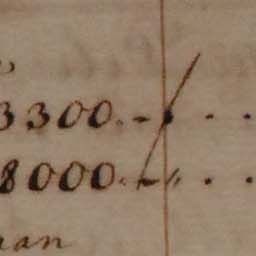 3300. - . .
8000. - " . .